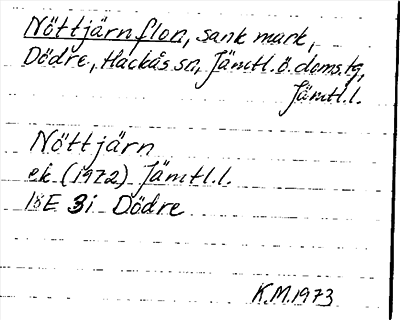 Nöttjärnflon, sank mark,
Dödre, Hackås sn, Jämtl. ö. doms.tg,
Jämtl.l.
Nöttjärn
ek (1972) Jämtl.l.
18E 3i Dödre
K.M. 1973